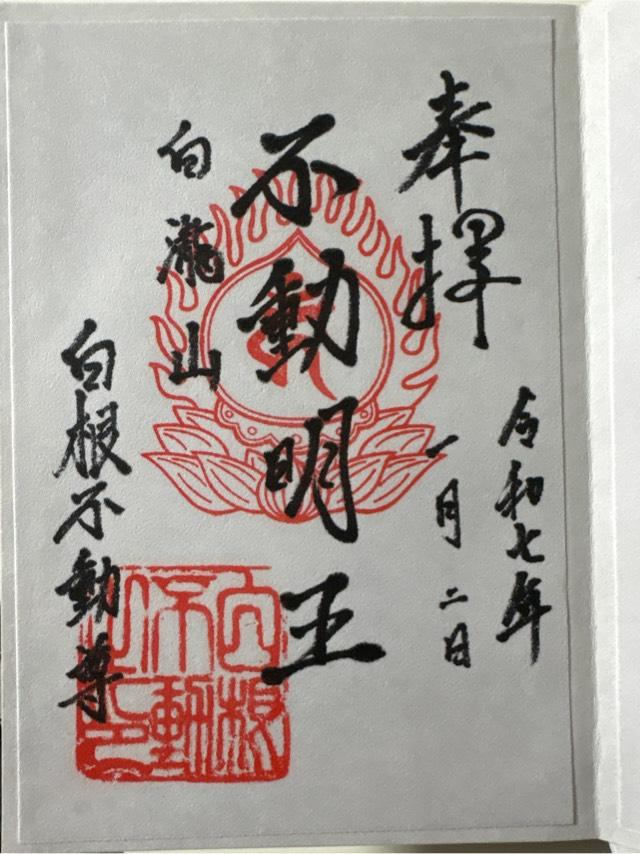 奉拝
令和七年
一月二日
不動明王
白瀧山
白根不動尊
白根不動之印